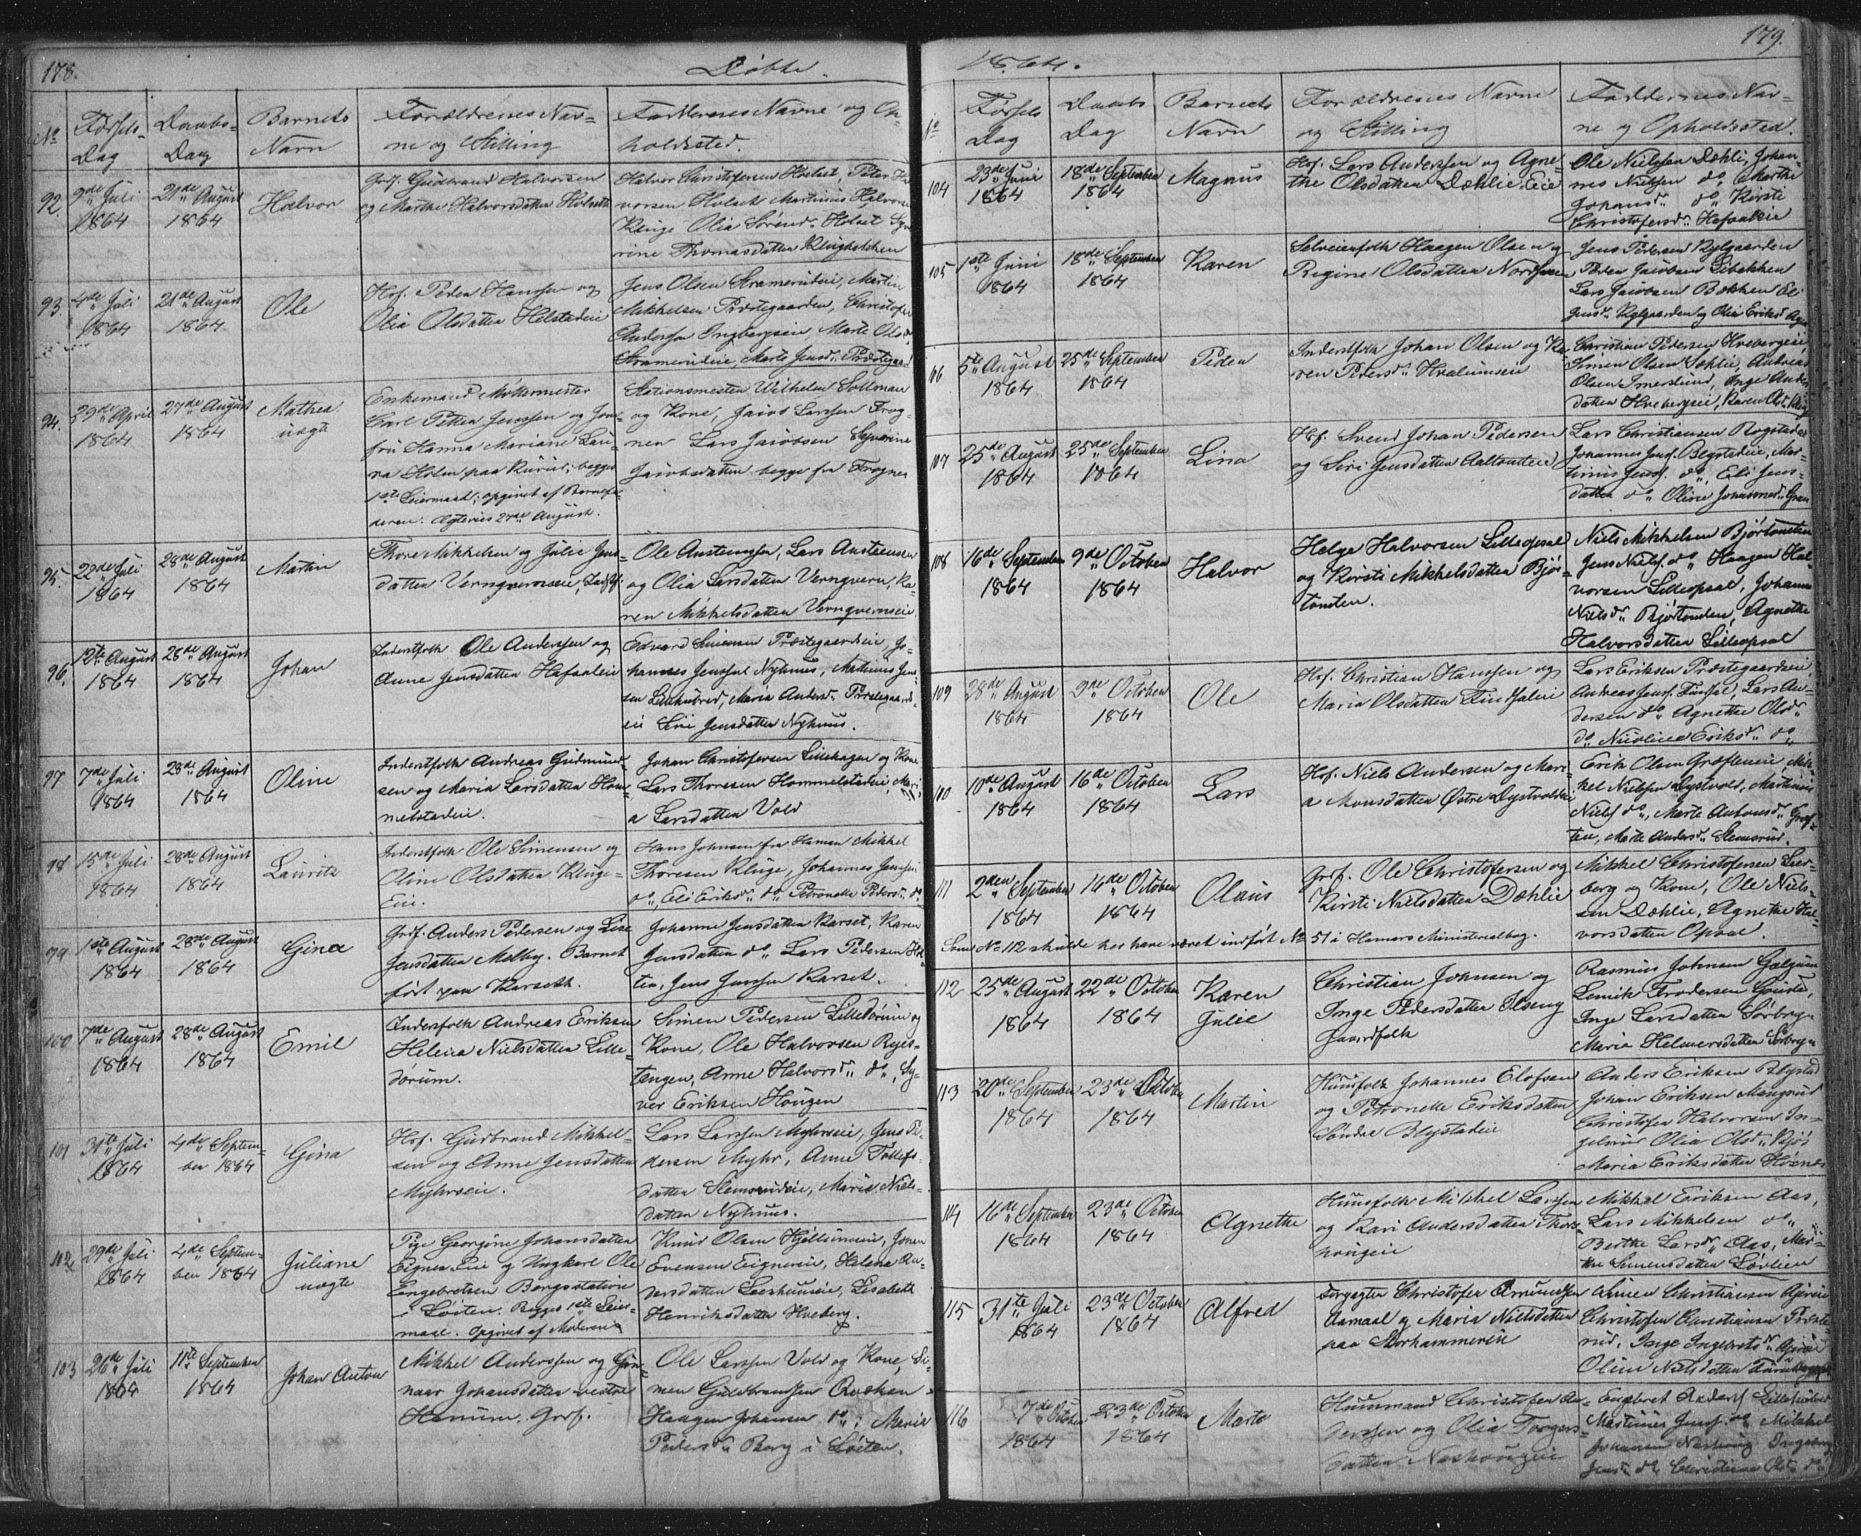 178.
Døbte.
No
Fødsels-
Dag
Daabs-
Dag
Barnets
Navn
Forældrenes Nav-
ne og Stilling
Faddernes Navne og Op-
holdssted.
92. 9de Juli 1864
21de August 1864
Halvor
Grf. Gudbrand Halvorsen
og Marthe Halvorsdatter Holseth
Halvor Christofersen Holset, Peter Hal-
vorsen Holset Martinus Halvors.
Kluge Olia Sørensd. Holset
Thomasdatter
93. 4de Juli 1864
21de August 1864
Ole
Hsf. Peder Hanssen og
Olia Olsdatter Helstadeie
Jens Olsen Kramerudeie, Martin
Mikkelsen Præstegaarden, Christofer
Andersen Ingbergseie Marte Olsd.
Kramerudeie, Marte Jensd. Præstegaard
94. 29de April 1864
27de August 1864
Mathea
uægte
Enkemand Møllermester
Carl Petter Jenssen og Jom-
fru Hanna Mariane Lau-
ra Holm paa Rurud; begges
1ste Leiermaal; opgivet af Barnefa-
deren. Ægtevies 27de August.
Stationsmester Wilhelm Sollman
og Kone, Jacob Larssen Frog-
ner Lars Jacobsen Syverine
Jacobsdatter begge fra Frogner
95. 22de Juli 1864
28de August 1864
Martin
Thore Mikkelsen og Julie Jens-
datter Vernqverneie,
Ole Austensen, Lars Austensen
og Olia Larsdatter Vernqvern, Ka-
ren Mikkelsdatter Vernqverneie.
96. 12te August 1864
28de August 1864
Johan
Inderstfolk Ole Anderssen og
Anne Jensdatter Hafsaleie
Edvard Simensen Præstegaardeie, Jo-
hannes Jenssen Nyhuus, Mathias Jens-
sen Lillehubred, Maria Andersd. Præstegaard-
eie Siri Jensdatter Nyhuus.
97 7de Juli 1864
28de August 1864
Oline
Inderstfolk Andreas Gudmund-
sen og Maria Larsdatter Hom-
melstadeie.
Johan Christofersen Lillehagen og Kone
Lars Thoresen Hommelstadeie Mari-
a Larsdatter Vold
98 15de Juli 1864
28de August 1864
Lauritz
Inderstfolk Ole Simensen og
Oline Olsdatter Kluge-
Eie.
Hans Johnsen fra Hamar Mikkel
Thoresen Kluge, Johannes Jenssen
do, Eli Eriksd. do Petronelle Pedersd. do
99 1ste August 1864
28de August 1864
Gina
Grf. Anders Pedersen og Lise
Jensdatter Melby. Barnet
ført paa Karseth.
Johanne Jensdatter Karset, Karen
Jensdatter do Lars Pedersen
Jens Jenssen Karset.
100 7de August 1864
28de August 1864
Emil
Inderstfolk Andreas Eriksen
Helena Nielsdatter Lille-
dørum.
Simen Pedersen Lilledørum og
Kone, Ole Halvorsen Ryes-
tangen, Anne Halvorsd. do, Sy-
ver Eriksen Hougen
101 31te Juli 1864
4de Septem-
ber 1864
Gina
Hsf. Gudbrand Mikkel-
sen og Anne Jensdatter
Myhrseie.
Lars Larssen Myhrseie, Jens Pe-
dersen Myhr, Anne Tollefs-
datter Slemsrudeie, Marie Niels-
datter Nyhuus.
102 29de Juli 1864
4de Septem-
ber 1864
Juliane
uægte
Pige Georgine Johansdatter
Eigner Eie og Ungkarl Ole
Engebretsen Bergsstation
i Løiten. Begges 1ste Leier-
maal. opgivet af Moderen
Knud Olsen Hjellumeie, Johan
Evensen Eignerie, Helena An-
dersdatter Leeshuuseie, Lisabeth
Henriksdatter Hveberg.
103 26de Juli 1864
11te September 1864
Johan Anton
Mikkel Anderssen og Gun-
naar Johansdatter vestre
Hanum. Grf.
Ole Larssen Vold og Kone, Si-
men Guldbranssen
Haagen Johansen do, Maria
Pedersd. Berg i Løiten.
1864.
179.
No
Fødsels
Dag
Daabs
Dag
Barnets
Navn
Forældrenes Navne
og Stilling
Faddernes Nav-
ne og Opholdssted.
104 23de Juni 1864
18de September 1864
Magnus
Hsf. Lars Anderssen og Agne-
the Olsdatter Dæhlie Eie
Ole Nielsen Dæhli, Johan-
nes Nielsen do Marthe
Johansd. do Kirsti
Christofersd. Hafsaleie
105 1ste Juni 1864
18de September 1864
Karen
Selveierfolk Haagen Olsen og
Regine Olsdatter
Jens Pedersen Kylgaarden
Peder Jacobsen Libakken
Lars Jacobsen Bækken
Jensd. Kylgaarden og Olia Eriksd.
106 5te August 1864
25de September 1864
Peder
Inderstfolk Johan Olsen og Ka-
ren Pedersd. Hvalumseie
Christian Pedersen Hvebergeie
Simen Olsen Dæhlie, Andreas
Olsen Imerslund, Inge Anders-
datter Hvebergeie, Karen Olsd.
107 25de August 1864
25de September 1864
Lina
Hsf. Svend Johan Pedersen
og Siri Jensdatter
Lars Christiansen
Johannes Jensf. Blystadeie, Mar-
tinus Jensf. do, Eli Jens-
datter do Oline Johannesd.
108 16de September 1864
9de October 1864
Halvor
Helge Halvorsen Lilleopsal
og Kirsti Mikkelsdatter Bjør-
tomten.
Niels Mikkelsen Bjørtomten
Jens Nielsf. do Haagen Hal-
vorsen Lilleopsal, Johanne
Nielsd. Bjørtomten, Agnethe
Halvorsdatter Lilleopsal
109 28de August 1864
9de October 1864
Ole
Hsf. Christian Hanssen og
Maria Olsdatter
Lars Eriksen Præstegaardeie
Andreas Jensf. Furset, Lars An-
dersen do Agnethe Olsd.
do Nicoline Eriksd. do
110 10de August 1864
16de October 1864
Lars
Hsf. Niels Andersen og Mari-
a Monsdatter Østre Dystvoldeie
Erik Olsen Græfteneie Mik-
kel Nielssen Dystvold, Martinus
Nielsf do, Marte Antonsd. Græf-
ten, Marte Andersd. Slemsrud.
111 2den September 1864
16de October 1864
Olaus
Grf. Ole Christofersen og
Kirsti Nielsdatter Dæhlie
Mikkel Christofersen Leer-
berg og Kone, Ole Niels-
sen Dæhlie, Agnethe Hal-
vorsdatter Opsal.
Som No 112 skulde her have været indført No 51 i Hamars Ministerialbog.
112 25de August 1864
22de October 1864
Karen
Julie
Christian Johnsen og
Inge Pedersdatter Ilseng
Gaardfolk
Rasmus Johnsen Gaalgum
Lemik Frodersen Gaarder,
Inge Larsdatter Sørbryn
Maria Helmersdatter Sørbryn
113 20de September 1864
23de October 1864
Martin
Huusfolk Johannes Elofsen
og Petronelle Eriksdatter
Søndre Blystadeie
Anders Eriksen Blystad
Johan Eriksen Mangrud
Christofer Halvorsen In-
gelsrud Olia Olsd. Kjøs
Maria Eriksdatter
114 16de September 1864
23de October 1864
Agnethe
Huusfolk Mikkel Larssen
og Kari Andersdatter Thors-
hougeie
Mikkel Eriksen Aas,
Lars Mikkelsen do
Berthe Larsd. Aas, Mar-
the Simensdatter Løvlien
115 31te Juli 1864
23de October 1864
Alfred
Forpagter Christofer Amundsen
Aamaal og Maria Nielsdatter
paa Storhammeren
Simen Christiansen
Christofer Christiansen
Inge Ingebretsd.
Oline Nielsdatter
116 7de October 1864
23de October 1864
Marte
Huusmand Christofer An-
dersen og Olia Torgers-
datter Næshougeie
Engebret Andersf Lillehubred
Martinus Jensf. do Mikkel
Johansen Næshoug, Ingeborg
Jensd. do Christiane Olsd. do